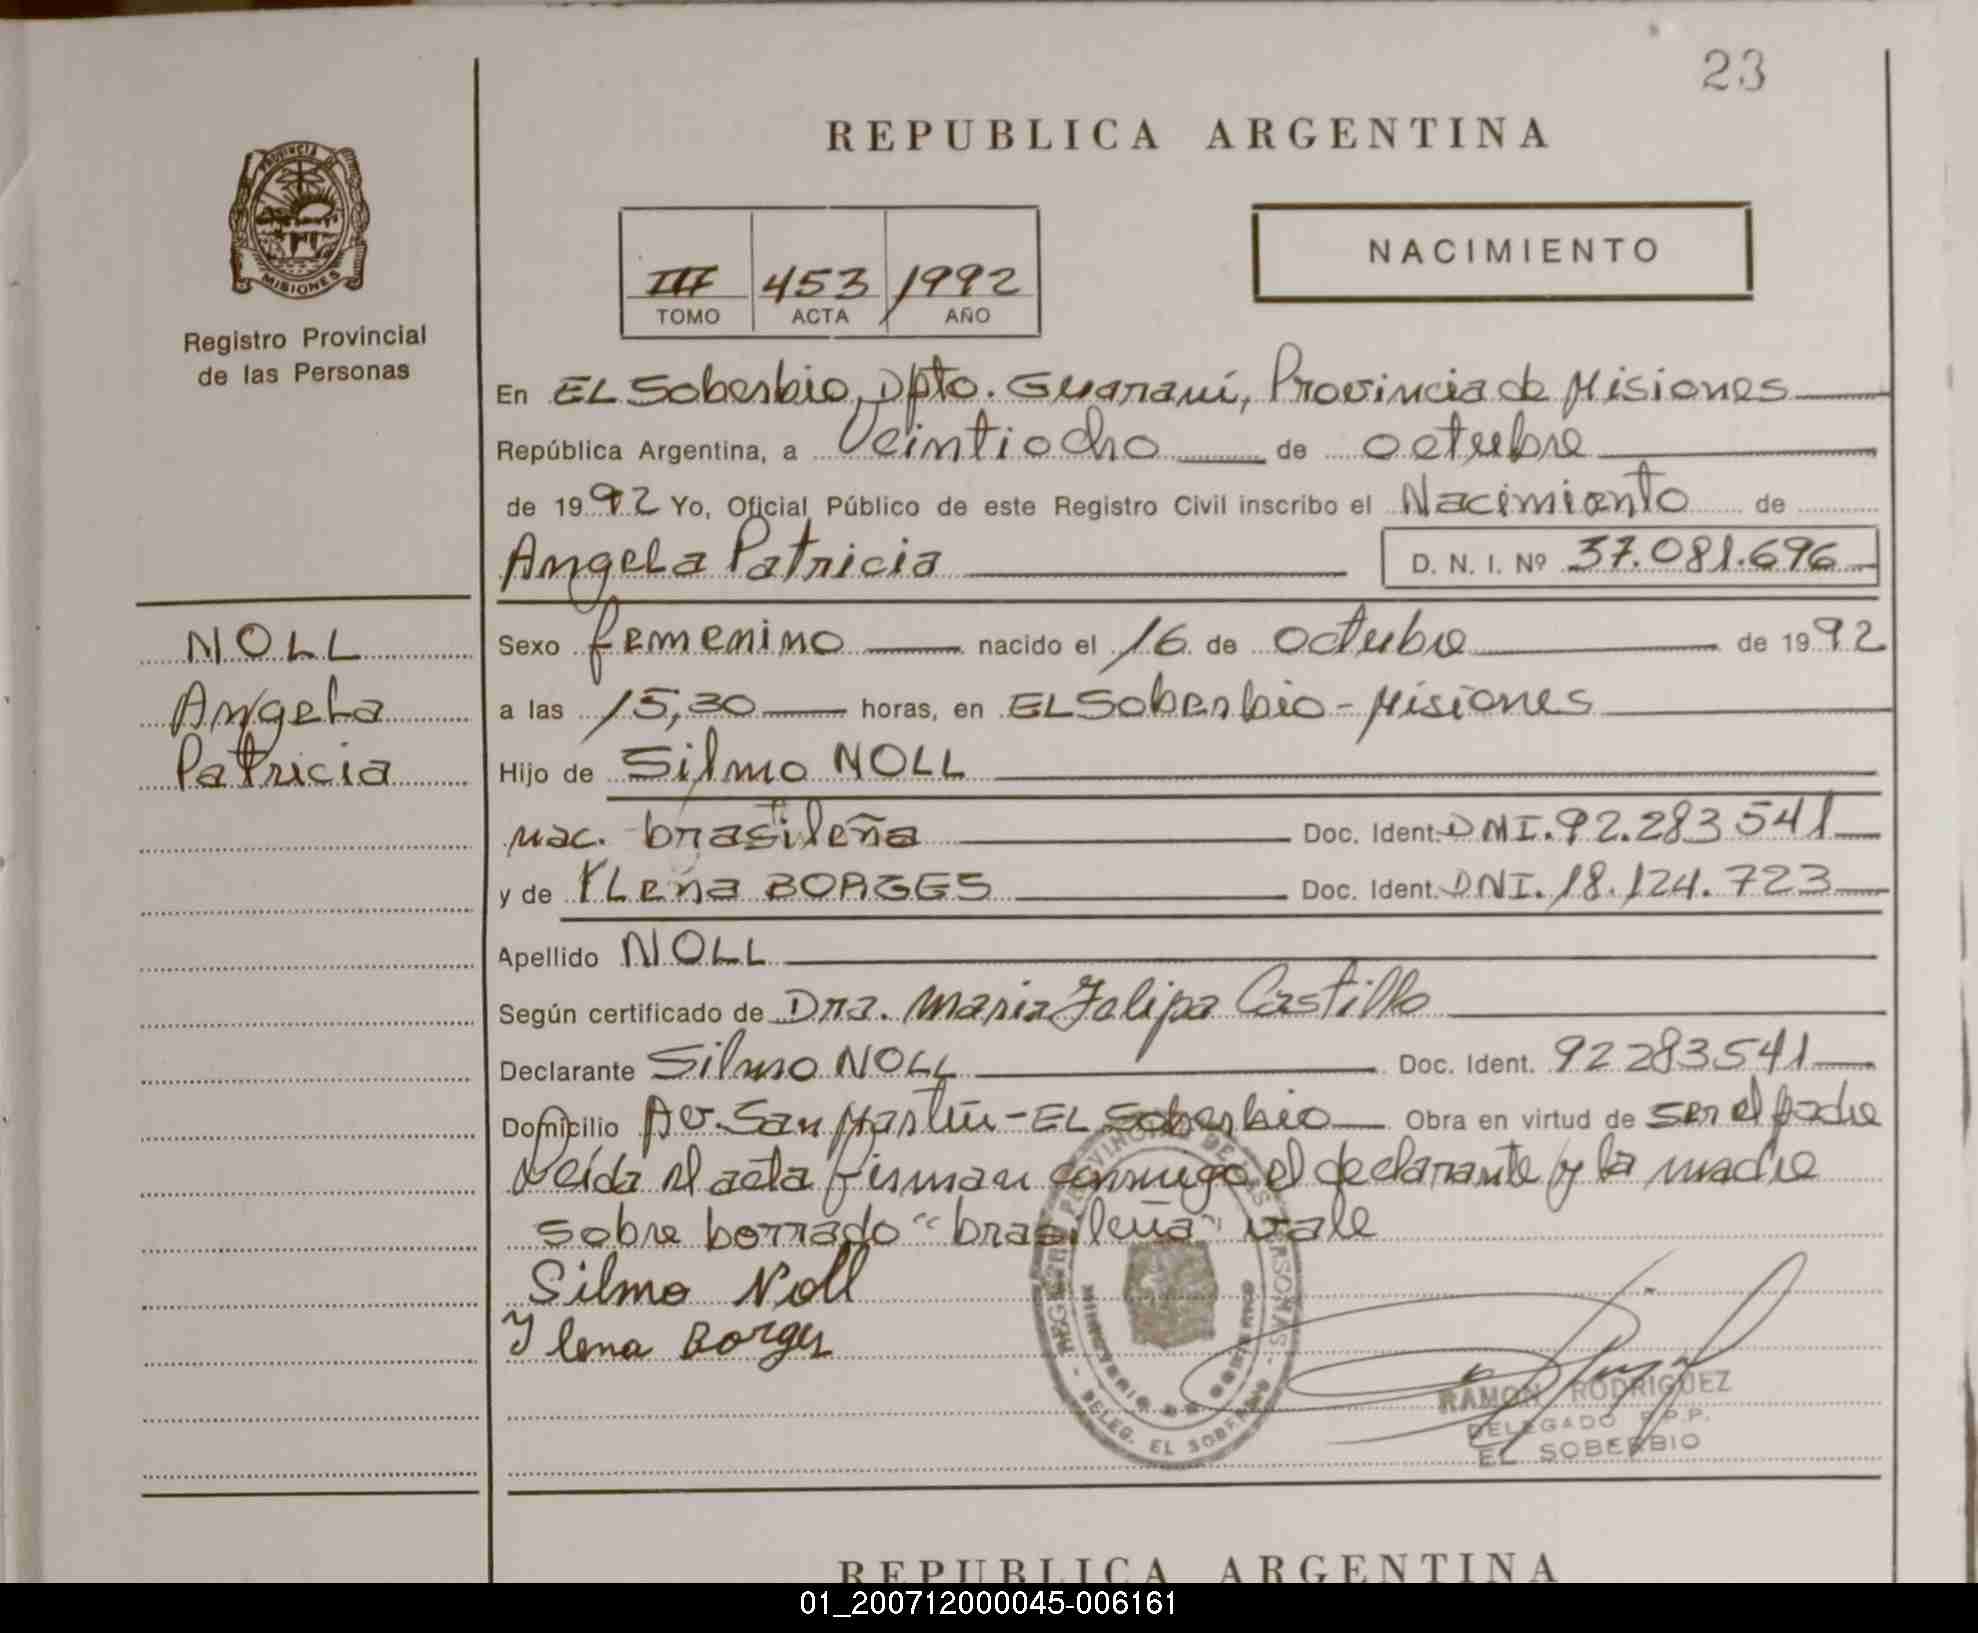 23
REPUBLICA ARGENTINA
PROVINCIA DE
MISIONES
Registro Provincial
de las Personas
NACIMIENTO
III 453 1992
TOMO ACTA AÑO
En EL Soberbio, Dpto. Guaraní, Provincia de Misiones
República Argentina, a Veintiocho de octubre
de 1992 Yo, Oficial Público de este Registro Civil inscribo el Nacimiento de
Angela Patricia D. N. I. Nº 37.081.696
NOLL
Angela
Patricia
Sexo femenino nacido el 16 de octubre de 1992
a las 15,30 horas, en EL Soberbio - Misiones
Hijo de Silmo NOLL
nac. brasileña Doc. Ident. DNI. 92.283541
y de Ylena BORGES Doc. Ident. DNI. 18.124.723
Apellido NOLL
Según certificado de Dra. Maria Felipa Castillo
Declarante Silmo NOLL Doc. Ident. 92283541
Domicilio Av. San Martín - EL Soberbio Obra en virtud de ser el padre
Leída el acta firman conmigo el declarante y la madre
sobre borrado "brasileña" vale
Silmo Noll
Ylena Borges
REGISTRO PROVINCIAL DE LAS PERSONAS
MINISTERIO DE GOBIERNO
DELEG. EL SOBERBIO
RAMON RODRIGUEZ
DELEGADO R.P.P.
EL SOBERBIO
REPUBLICA ARGENTINA
01_200712000045-006161